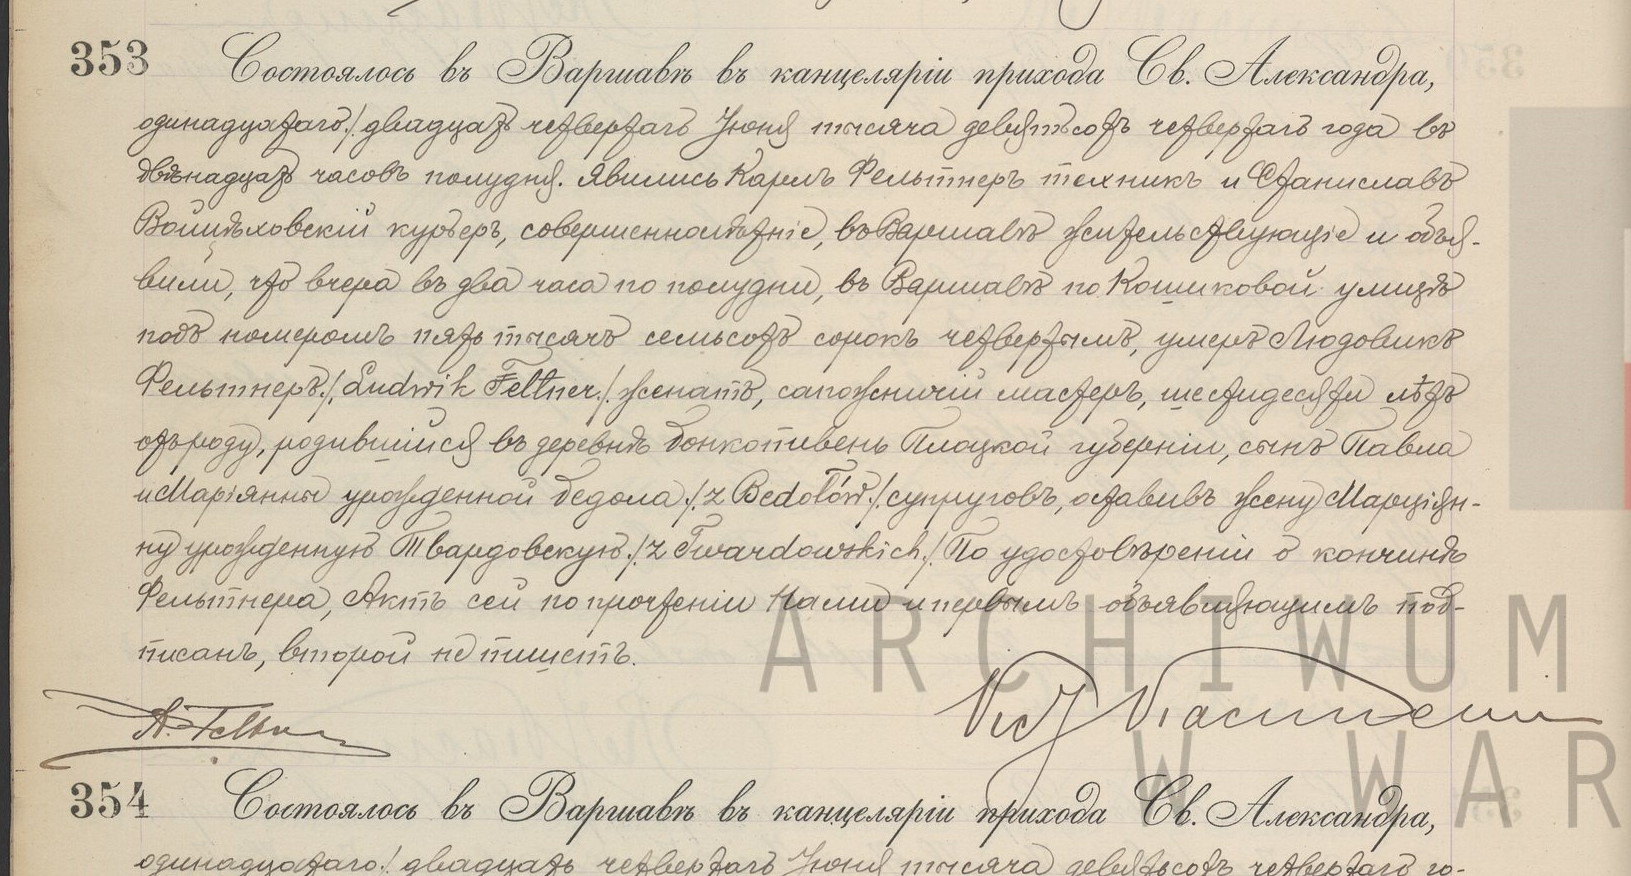 353 Состоялось въ Варшавѣ въ канцеляріи прихода Св. Александра,
одинадцатаго /двадцать четвертаго Іюня тысяча девятьсотъ четвертаго года въ
двѣнадцать часовъ полудня. Явились Карлъ Фельтнеръ техникъ и Станиславъ
Войцѣховскій курьеръ, совершеннолѣтніе, въ Варшавѣ жительствующіе и объя-
вили, что вчера въ два часа по полудни, въ Варшавѣ по Кошиковой улицѣ
подъ номеромъ пять тысячъ семьсотъ сорокъ четвертымъ, умеръ Людовикъ
Фельтнеръ /Ludwik Feltner/ женатъ, сапожничій мастеръ, шестидесяти лѣтъ
отъ роду, родившійся въ деревнѣ Плоцкой губерніи, сынъ Павла
и Маріянны урожденной Бедола /z Bedołów/ супруговъ, оставивъ жену Марціян-
ну урожденную Твардовскую /z Twardowskich/ По удостовѣреніи о кончинѣ
Фельтнера, Актъ сей по прочтеніи Нами и первымъ объявляющимъ под-
писанъ, второй не пишетъ.
ARCHIWUM
W WAR
354 Состоялось въ Варшавѣ въ канцеляріи прихода Св. Александра,
одинадцатаго / двадцать четвертаго Іюня тысяча девятьсотъ четвертаго го-